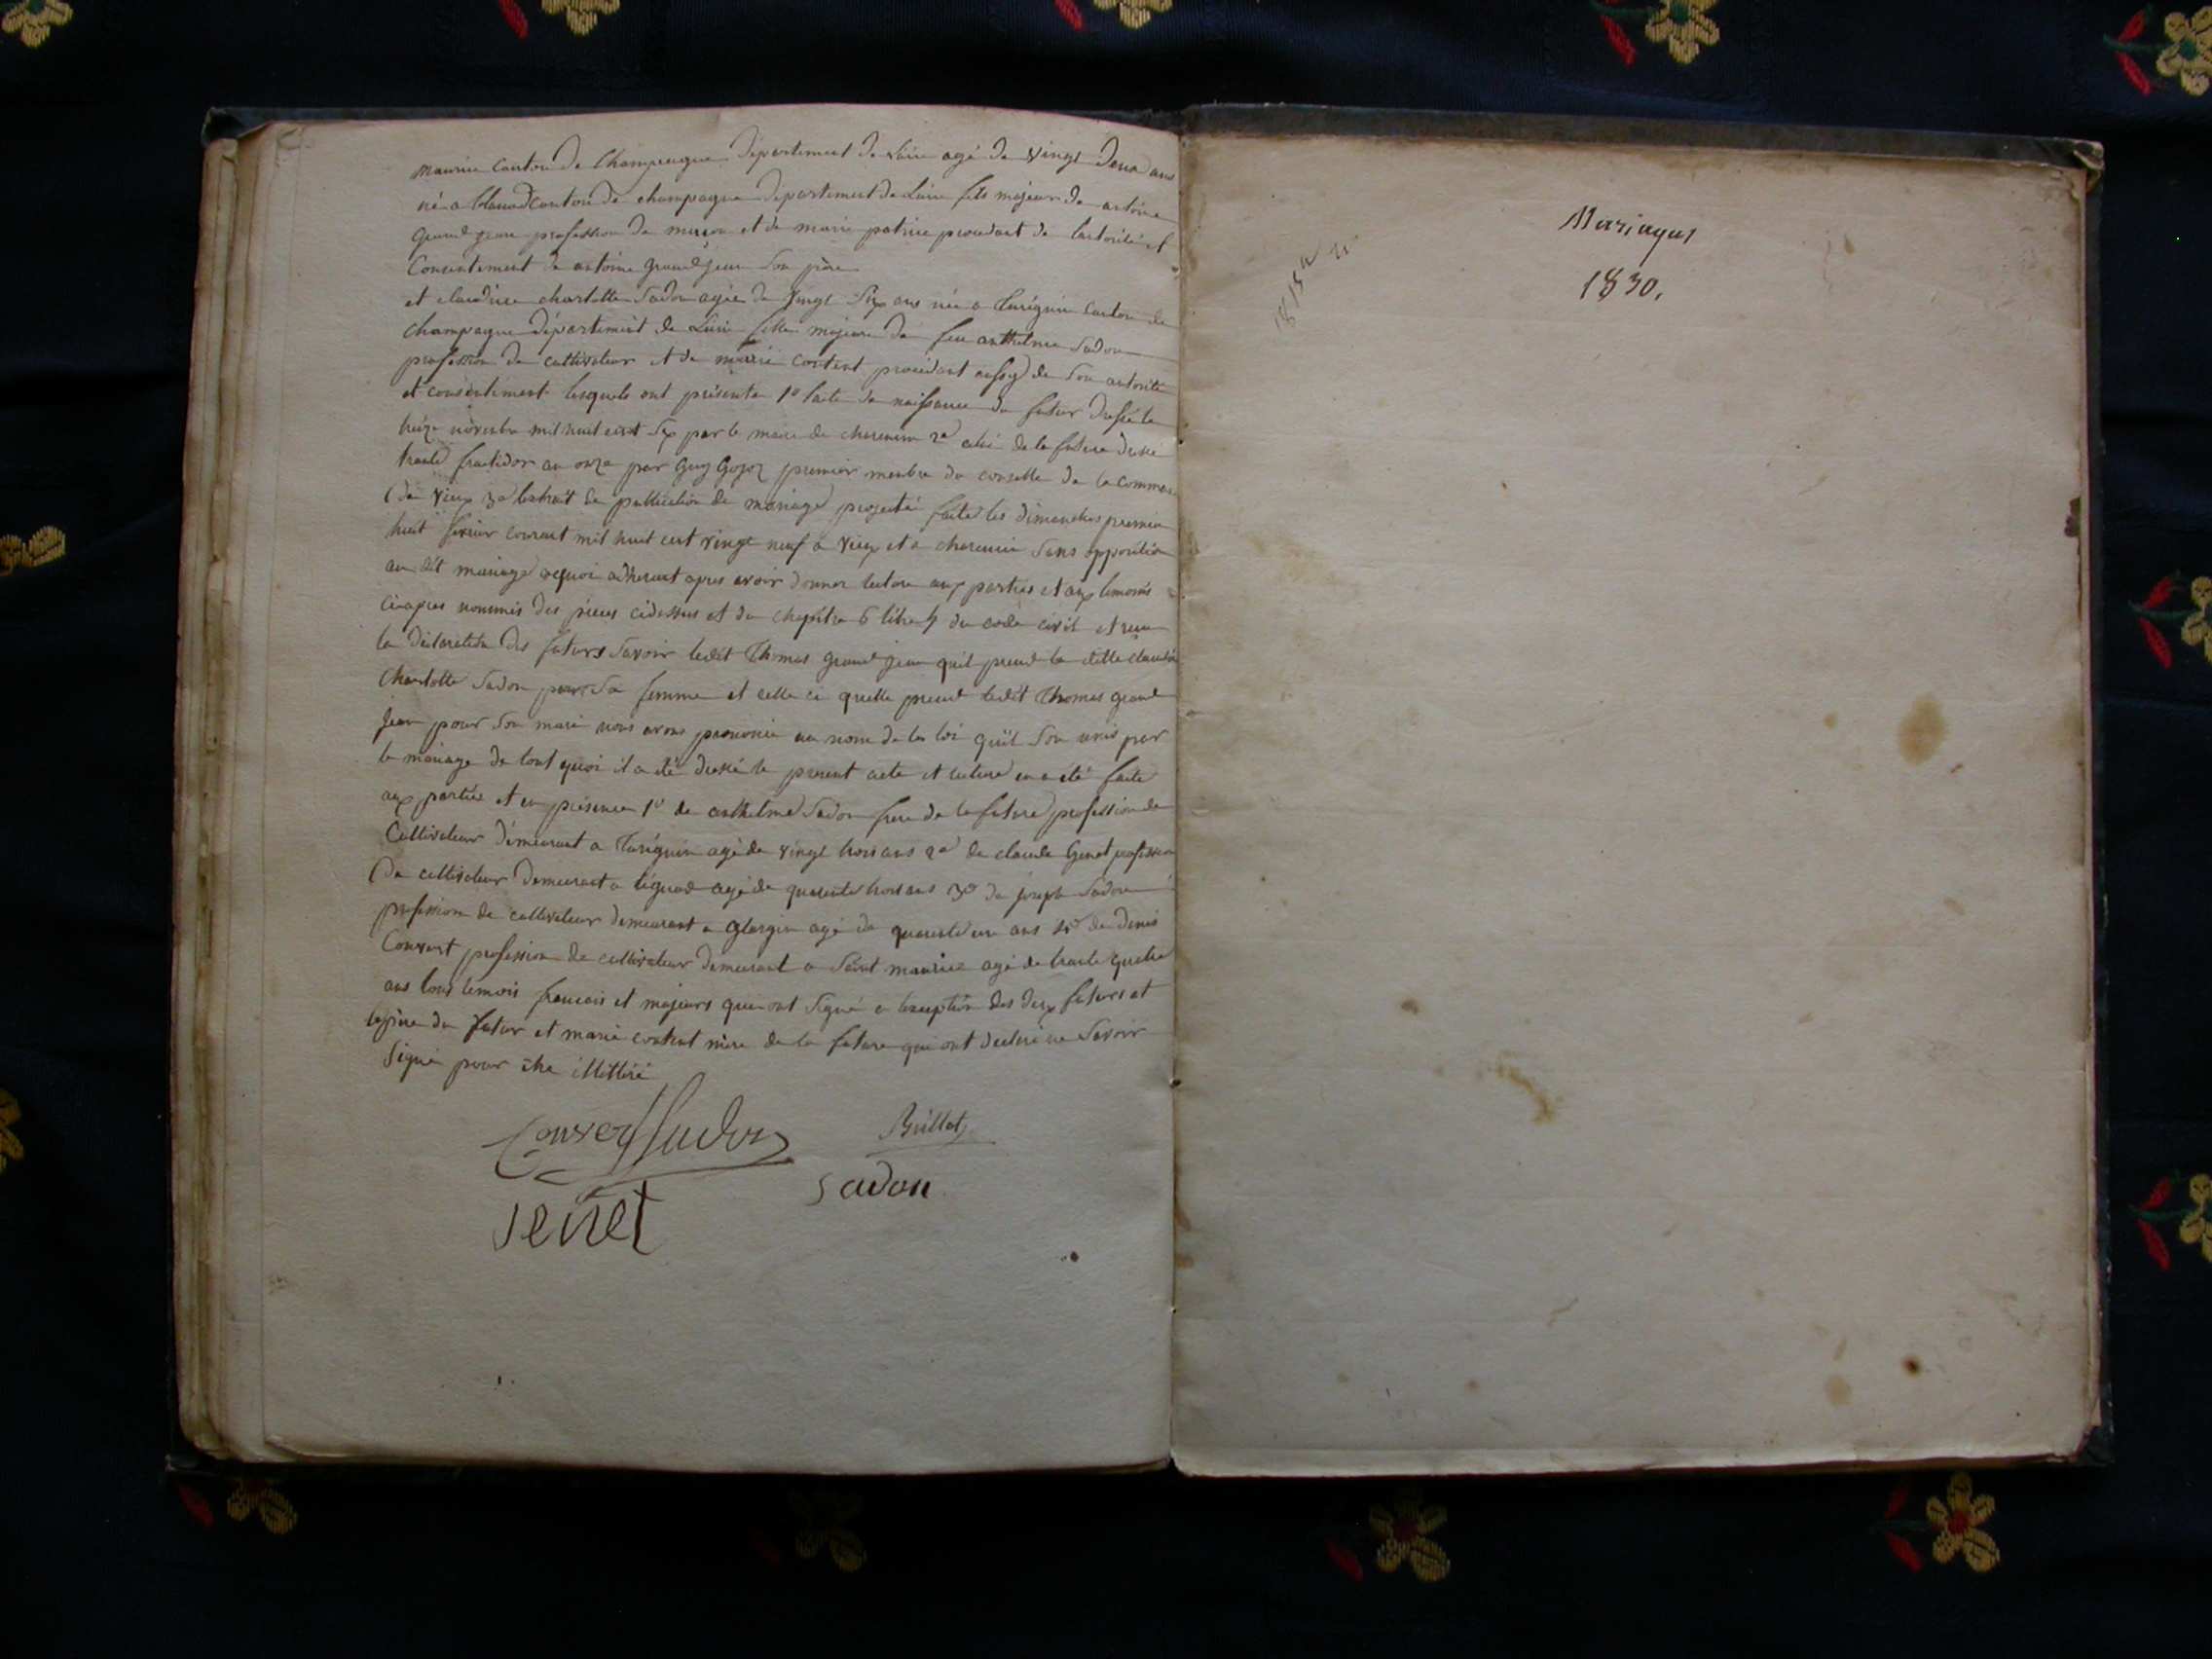 maurice canton de Champagne département de Lain agé de vingt deux ans
né a canton de champagne département de Lain fils majeur de antoine
grand jean profession de maçon et de marie patrice procedant de lautorité et
Consentement de antoine grand jean son père
et claudine charlotte Sadon agée de vingt Six ans née a Turignin canton de
Champagne département de Lain fille majeure de feu anthelme Sadon
profession de cultivateur et de marie content procédant aussy de Son autorité
et consentement lesquels ont présenté 1º lacte de naissance du futur dressé le
treize novembre mil huit cent Six par le maire de charencin 2º celui de la future dressé
trante fructidor an onze par Guy Gojoz premier membre du conselle de la commune
de vieux 3º lextrait de publication de mariage projeté faite les dimanches premier
huit fevrier courant mil huit cent vingt neuf a vieux et a charencin Sans opposition
au dit mariage aquoi adherant apres avoir donner lecture aux parties et aux temoins
ciapres nommés des pièces cidessus et du chapitre 6 titre du code civil et reçu
la déclaration des futurs Savoir ledit Thomas grand jean quil prend la ditte claudine
Charlotte Sadon pour Sa femme et celle ci quelle prend ledit Thomas grand
jean pour Son mari nous avons prononcé au nom de la loi quil Son unis par
le mariage de tout quoi il a été dressé le present acte et lecture en a été faite
aux parties et en présence 1º de anthelme Sadon frere de la future profession de
Cultivateur démeurant a Turignin agé de vingt trois ans 2º de claude Genet profession
De cultivateur demeurant a agé de quarante trois ans 3º de joseph Sadon
profession de cultivateur demeurant a agé de quarante un ans 4º de Denis
Convert profession de cultivateur demeurant a Saint maurice agé de trante quatre
ans tous temois francais et majeurs qui ont Signé a lexception des deux futurs et
le père du futur et marie content mère de la future qui ont declaré ne Savoir
Signé pour être illittéré
Convert Sadon Billet
Sadon
jenet
Mariages
1830.